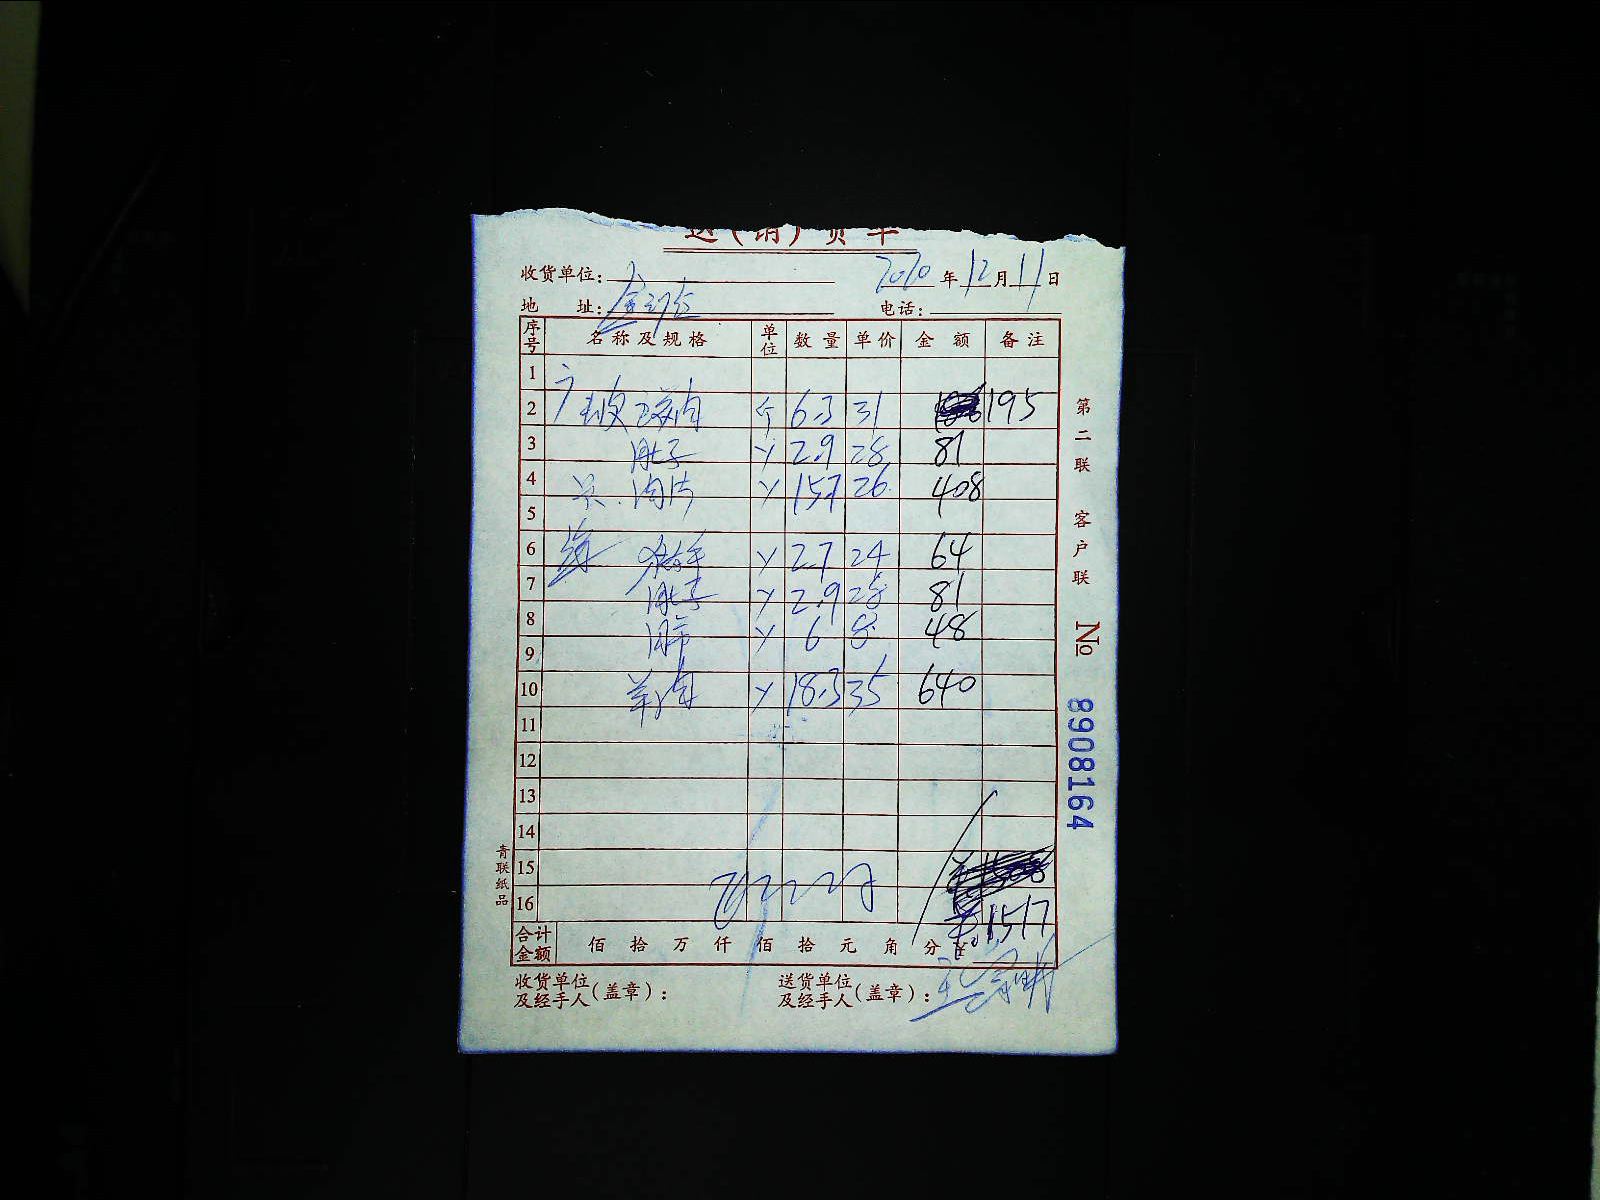 送(销)货单
收货单位: 2020年12月11日
地 址: 电话:
序号 名称及规格 单位 数量 单价 金额 备注
1
2 肉 个 6.3 31 195
3 肚子 2.9 28 81
4 肉片 15.7 26 408
5
6 2.7 24 64
7 肚子 2.9 28 81
8 肺 6 8 48
9
10 羊肉 18.3 35 640
11
12
13
14
15
16 1517
合计金额 佰 拾 万 仟 佰 拾 元 角 分 ¥
收货单位及经手人(盖章): 送货单位及经手人(盖章):
第二联 客户联 No 8908164
青联纸品